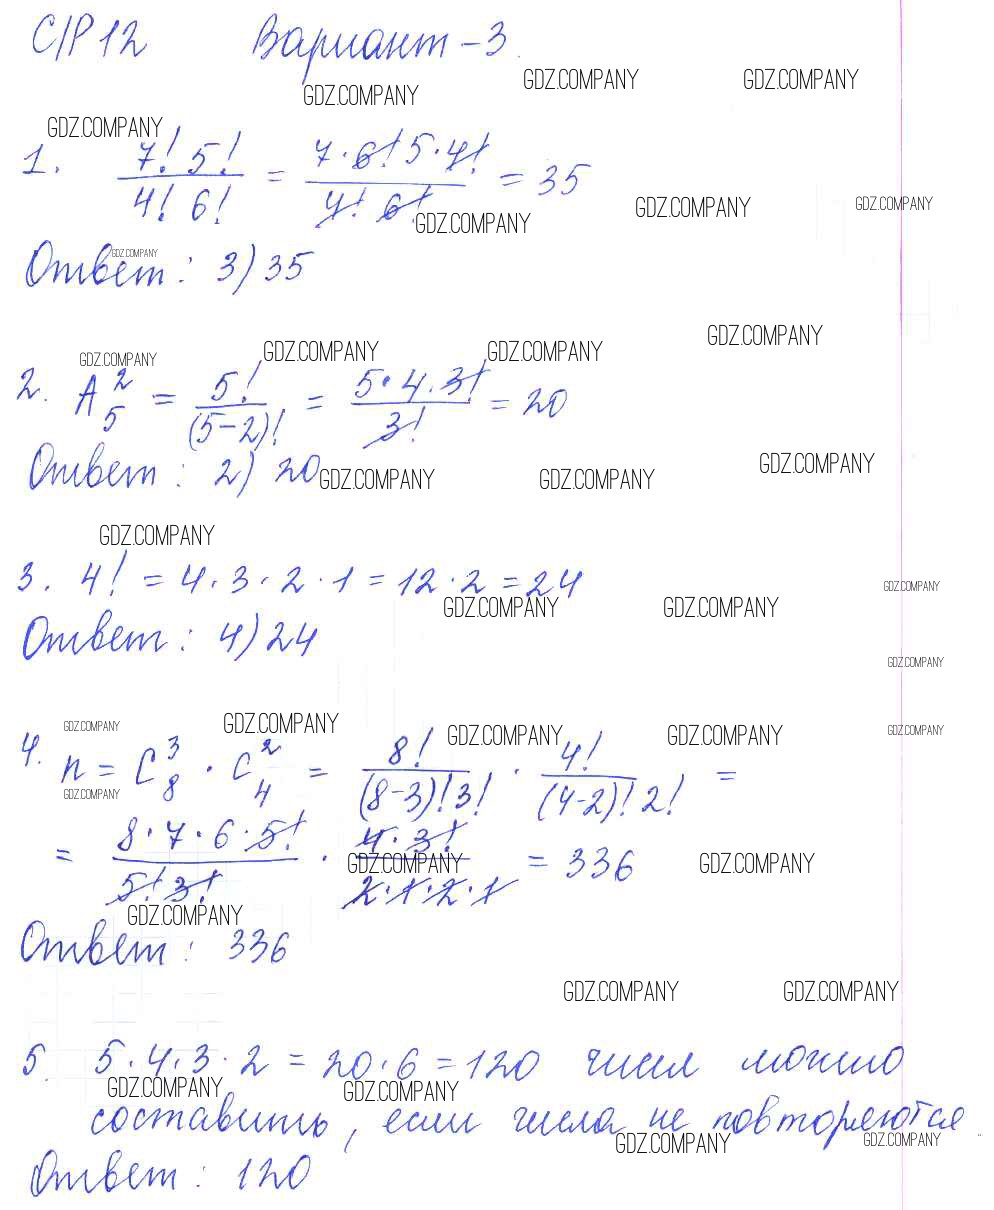 С/Р 12 Вариант - 3.
GDZ.COMPANY GDZ.COMPANY GDZ.COMPANY
GDZ.COMPANY
1. 7! 5! / 4! 6! = 7 · 6! 5 · 4! / 4! 6! = 35
GDZ.COMPANY GDZ.COMPANY GDZ.COMPANY
Ответ: 3) 35
GDZ.COMPANY
GDZ.COMPANY GDZ.COMPANY GDZ.COMPANY GDZ.COMPANY
2. A_5^2 = 5! / (5-2)! = 5 · 4 · 3! / 3! = 20
Ответ: 2) 20
GDZ.COMPANY GDZ.COMPANY GDZ.COMPANY
GDZ.COMPANY
3. 4! = 4 · 3 · 2 · 1 = 12 · 2 = 24
GDZ.COMPANY GDZ.COMPANY GDZ.COMPANY
Ответ: 4) 24
GDZ.COMPANY
GDZ.COMPANY GDZ.COMPANY GDZ.COMPANY GDZ.COMPANY GDZ.COMPANY
4. n = C_8^3 · C_4^2 = 8! / (8-3)! 3! · 4! / (4-2)! 2! =
GDZ.COMPANY
= 8 · 7 · 6 · 5! / 5! 3! · 4 · 3! / 2 · 1 · 2 · 1 = 336
GDZ.COMPANY GDZ.COMPANY
GDZ.COMPANY
Ответ: 336
GDZ.COMPANY GDZ.COMPANY
5. 5 · 4 · 3 · 2 = 20 · 6 = 120 чисел можно
GDZ.COMPANY GDZ.COMPANY
составить, если числа не повторяются
GDZ.COMPANY GDZ.COMPANY
Ответ: 120